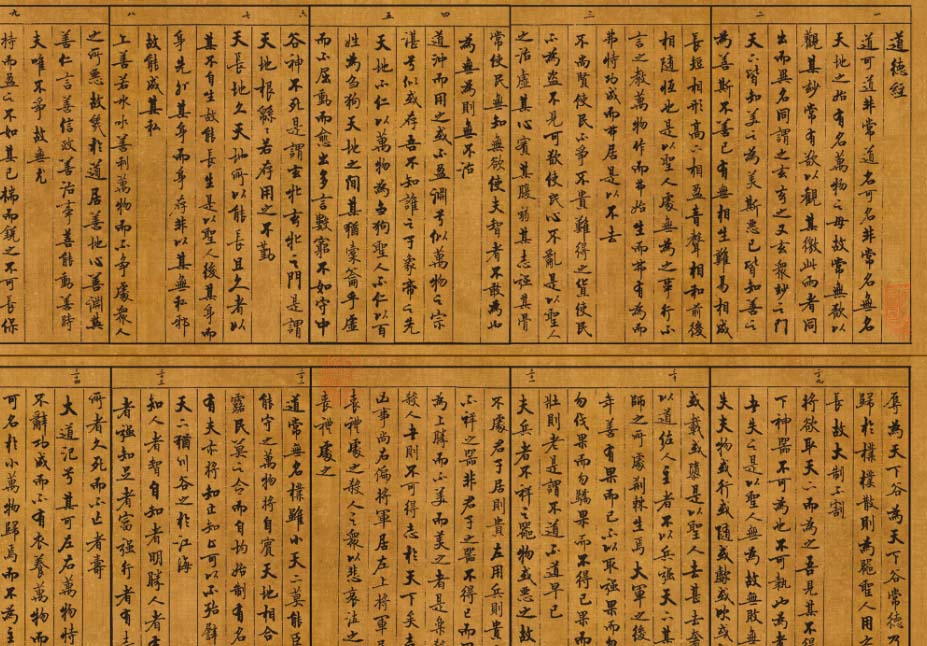 一 二 三 四 五 六 七 八 九
道德經
道可道非常道名可名非常名無名
天地之始有名萬物之母故常無欲以
觀其妙常有欲以觀其徼此兩者同
出而異名同謂之玄玄之又玄眾妙之門
天下皆知美之為美斯惡已皆知善之
為善斯不善已有無相生難易相成
長短相形高下相盈音聲相和前後
相隨恒也是以聖人處無為之事行不
言之教萬物作而弗始生而弗有為而
弗恃功成而弗居是以不去
不尚賢使民不爭不貴難得之貨使民
不為盜不見可欲使民心不亂是以聖人
之治虛其心實其腹弱其志強其骨
常使民無知無欲使夫智者不敢為也
為無為則無不治
道沖而用之或不盈淵兮似萬物之宗
湛兮似或存吾不知誰之子象帝之先
天地不仁以萬物為芻狗聖人不仁以百
姓為芻狗天地之間其猶橐籥乎虛
而不屈動而愈出多言數窮不如守中
谷神不死是謂玄牝玄牝之門是謂
天地根緜緜若存用之不勤
天長地久天地所以能長且久者以
其不自生故能長生是以聖人後其身而
身先外其身而身存非以其無私邪
故能成其私
上善若水水善利萬物而不爭處眾人
之所惡故幾於道居善地心善淵與
善仁言善信政善治事善能動善時
夫唯不爭故無尤
持而盈之不如其已揣而銳之不可長保
二十九 三十 三十一 三十二 三十三 三十四
辱為天下谷為天下谷常德乃
歸於樸樸散則為器聖人用之
長故大制不割
將欲取天下而為之吾見其不得
下神器不可為也不可執也為者
失之是以聖人無為故無敗無
失夫物或行或隨或歔或吹或
或載或隳是以聖人去甚去奢
以道佐人主者不以兵強天下其
師之所處荊棘生焉大軍之後
年善有果而已不以取強果而勿
勿伐果而勿驕果而不得已果而
壯則老是謂不道不道早已
夫兵者不祥之器物或惡之故
不處君子居則貴左用兵則貴
不祥之器非君子之器不得已而
為上勝而不美而美之者是樂殺
殺人者則不可得志於天下矣吉
凶事尚右偏將軍居左上將軍居
喪禮處之殺人之眾以悲哀泣之
喪禮處之
道常無名樸雖小天下莫能臣
能守之萬物將自賓天地相合
露民莫之令而自均始制有名
有夫亦將知止知止可以不殆譬
天下猶川谷之於江海
知人者智自知者明勝人者有
者強知足者富強行者有志
所者久死而不亡者壽
大道氾兮其可左右萬物恃
不辭功成而不有衣養萬物而
可名於小萬物歸焉而不為主